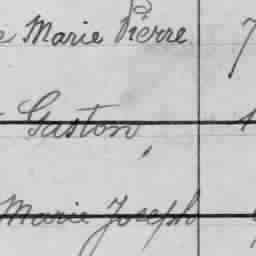 Marie Pierre
Gaston,
Marie Joseph